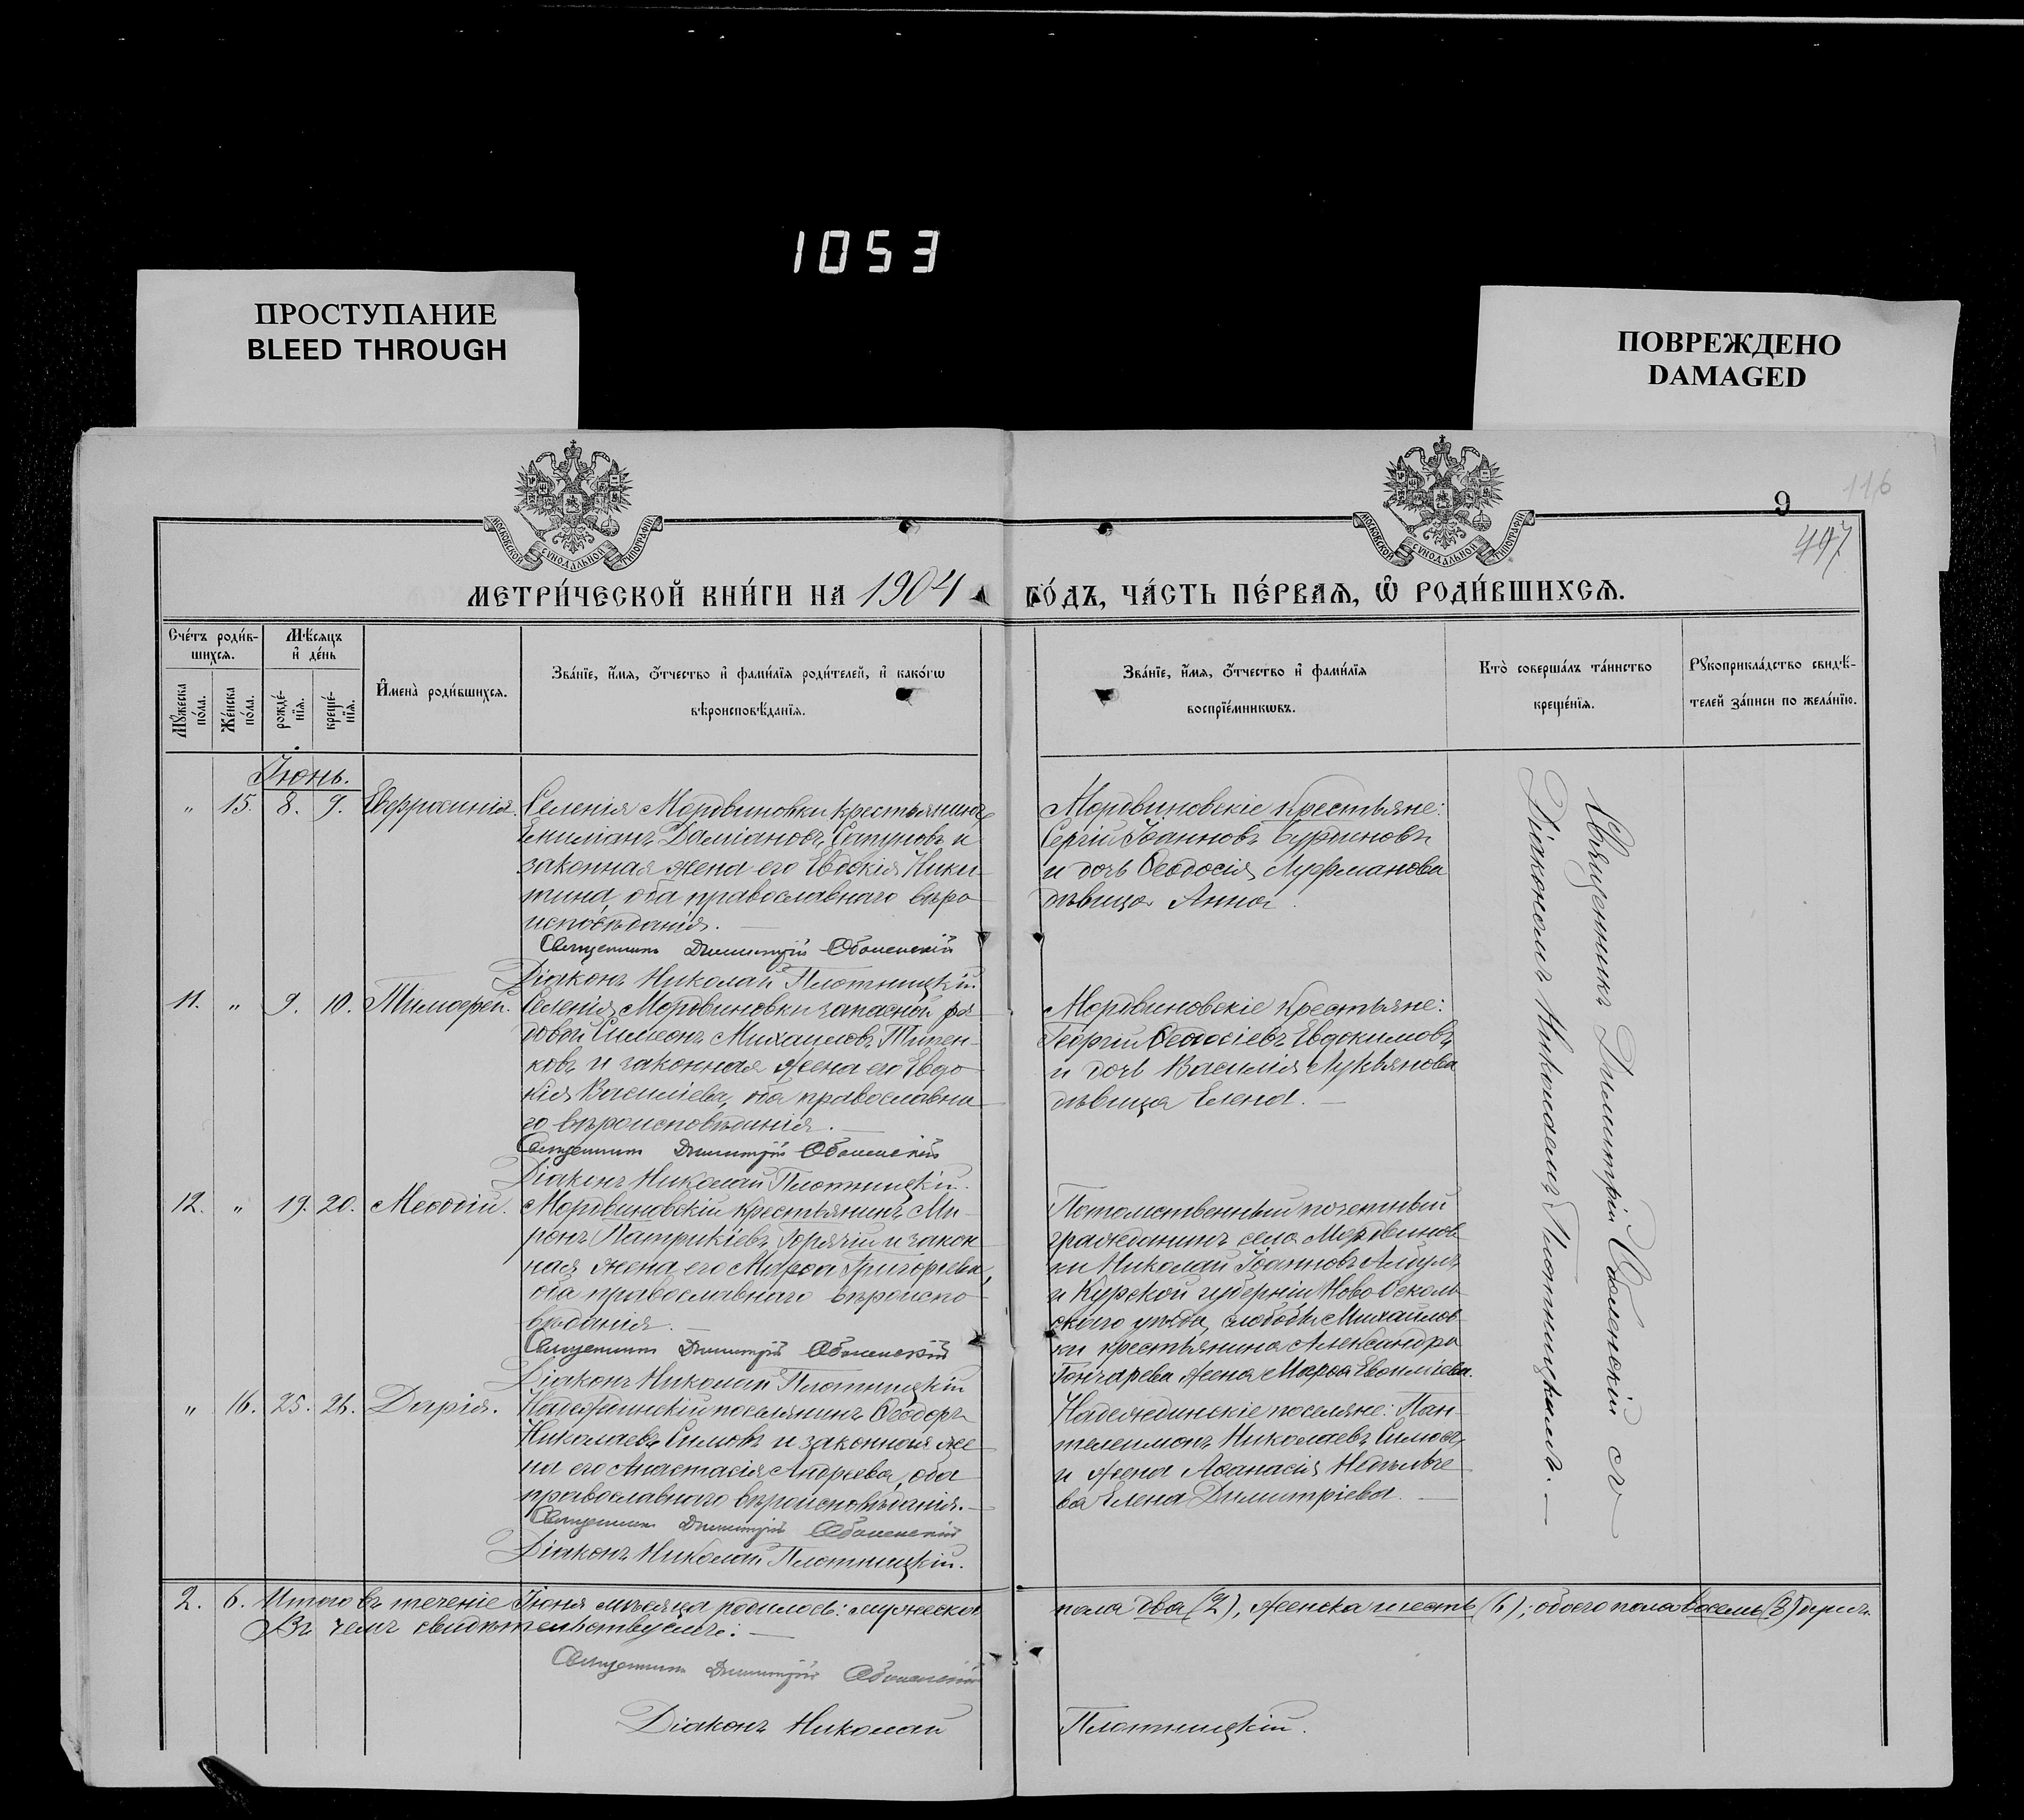 1053
ПРОСТУПАНИЕ
BLEED THROUGH
ПОВРЕЖДЕНО
DAMAGED
116
9
497
МОСКОВСКОЙ СѴНОДАЛЬНОЙ ТИПОГРАФІИ
МОСКОВСКОЙ СѴНОДАЛЬНОЙ ТИПОГРАФІИ
МЕТРИ́ЧЕСКОЙ КНИ́ГИ НА 1904 ГО́ДЪ, ЧА́СТЬ ПЕ́РВАѦ, Ѡ҆ РОДИ́ВШИХСѦ.
Сче́тъ роди́в-
шихсѧ.
Мѣ́сѧцъ
и҆ де́нь
Мꙋ́жеска по́ла.
Же́нска по́ла.
рожде́-
нїѧ.
креще́-
нїѧ.
И҆мена̀ роди́вшихсѧ.
Зва́нїе, и҆́мѧ, ѻ҆́тчество и҆ фами́лїѧ роди́телей, и҆ како́гѡ
вѣроисповѣ́данїѧ.
Зва́нїе, и҆́мѧ, ѻ҆́тчество и҆ фами́лїѧ
воспрїе́мникѡвъ.
Кто̀ соверша́лъ та́инство
креще́нїѧ.
Рꙋкоприкла́дство свидѣ́-
телей за́писи по жела́нїю.
Іюнь.
" 15. 8. 9. Евфросинія.
Селенія Мордвиновки крестьянинъ
Емиліанъ Даміановъ Сапуновъ и
законная жена его Евдокія Ники-
тина, оба православнаго вѣро-
исповѣданія.
Священникъ Димитрій Оболенскій
Діаконъ Николай Плотницкій.
Мордвиновскіе крестьяне:
Сергій Іоанновъ
и дочь Ѳеодосія
дѣвица Анна.
11. " 9. 10. Тимоѳей.
Селенія Мордвиновки запасной ря-
довой Симеонъ Михаиловъ Типен-
ковъ и законная жена его Евдо-
кія Василіева, оба православна-
го вѣроисповѣданія.
Священникъ Димитрій Оболенскій
Діаконъ Николай Плотницкій.
Мордвиновскіе крестьяне:
Георгій Ѳеодосіевъ Евдокимовъ
и дочь Василія Лукьянова
дѣвица Елена.
12. " 19. 20. Меѳодій.
Мордвиновскій крестьянинъ Ми-
ронъ Патрикіевъ Горячій и закон-
ная жена его Марѳа Григоріева,
оба православнаго вѣроиспо-
вѣданія.
Священникъ Димитрій Оболенскій
Діаконъ Николай Плотницкій
Потомственный почетный
гражданинъ села Мордвинов-
ки Николай Іоанновъ
и Курской губерніи Ново Осколь-
скаго уѣзда, слободы Михайлов-
ки крестьянина Александра
Гончарева жена Марѳа Евѳиміева.
" 16. 25. 26. Дарія.
Надеждинскій поселянинъ Ѳеодоръ
Николаевъ Симовъ и законная же-
на его Анастасія Андреева, оба
православнаго вѣроисповѣданія.
Священникъ Димитрій Оболенскій
Діаконъ Николай Плотницкій.
Надеждинскіе поселяне: Пан-
телеимонъ Николаевъ Симовъ
и жена Аѳанасія
ва Елена Димитріева.
Священникъ Димитрій Оболенскій съ
Діакономъ Николаемъ Плотницкимъ.
2. 6. Итого въ теченіе Іюня мѣсяца родилось: мужеска пола два (2), женска шесть (6); обоего пола восемь (8) душъ.
Въ чемъ свидѣтельствуемъ:
Священникъ Димитрій Оболенскій
Діаконъ Николай Плотницкій.